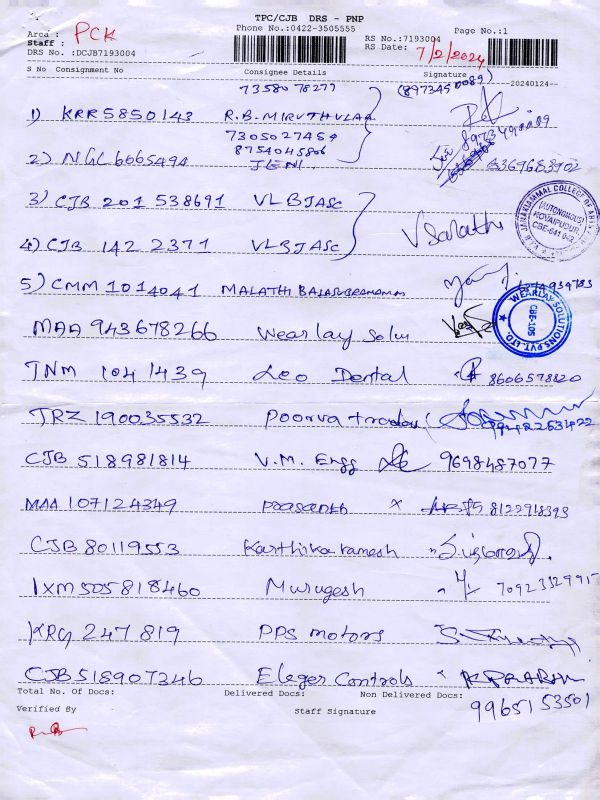 TPC/CJB DRS - PNP
Phone No.:0422-3505555
Page No.:1
Area : PCK
RS No.:7193004
Staff :
RS Date: 7/2/2024
DRS No. :DCJB7193004
S No Consignment No Consignee Details Signature --20240124--
7358078277 (8973490089)
1) KRR5850143 R.B. MIRUTHULAA
7305027459 8973490089
8754045806
2) NGL6065494 JENI
3) CJB 201 538691 VLBJASC
4) CJB 142 2371 VLBJASC V Sarathi
(AUTONOMOUS)
KOVAIPUDUR,
CBE-641 042
5) CMM 1014041 MALATHI BALASUBRAMANIAM
MAA 943678266 Wearlay Solu
WEARLAY SOLUTIONS PVT. LTD.
TNM 1041439 Leo Dental 8606578820
TRZ 190035532 Poorva traders
CJB 518981814 V.M. Engg 9698487077
MAA 107124349 Prasanth x 8122918393
CJB 80119553 Karthika ramesh
IXM505818460 Murugesh
KRG 247819 PPS motors
CJB518907346 Eleger Controls
Total No. Of Docs: Delivered Docs: Non Delivered Docs:
99651 53501
Verified By Staff Signature